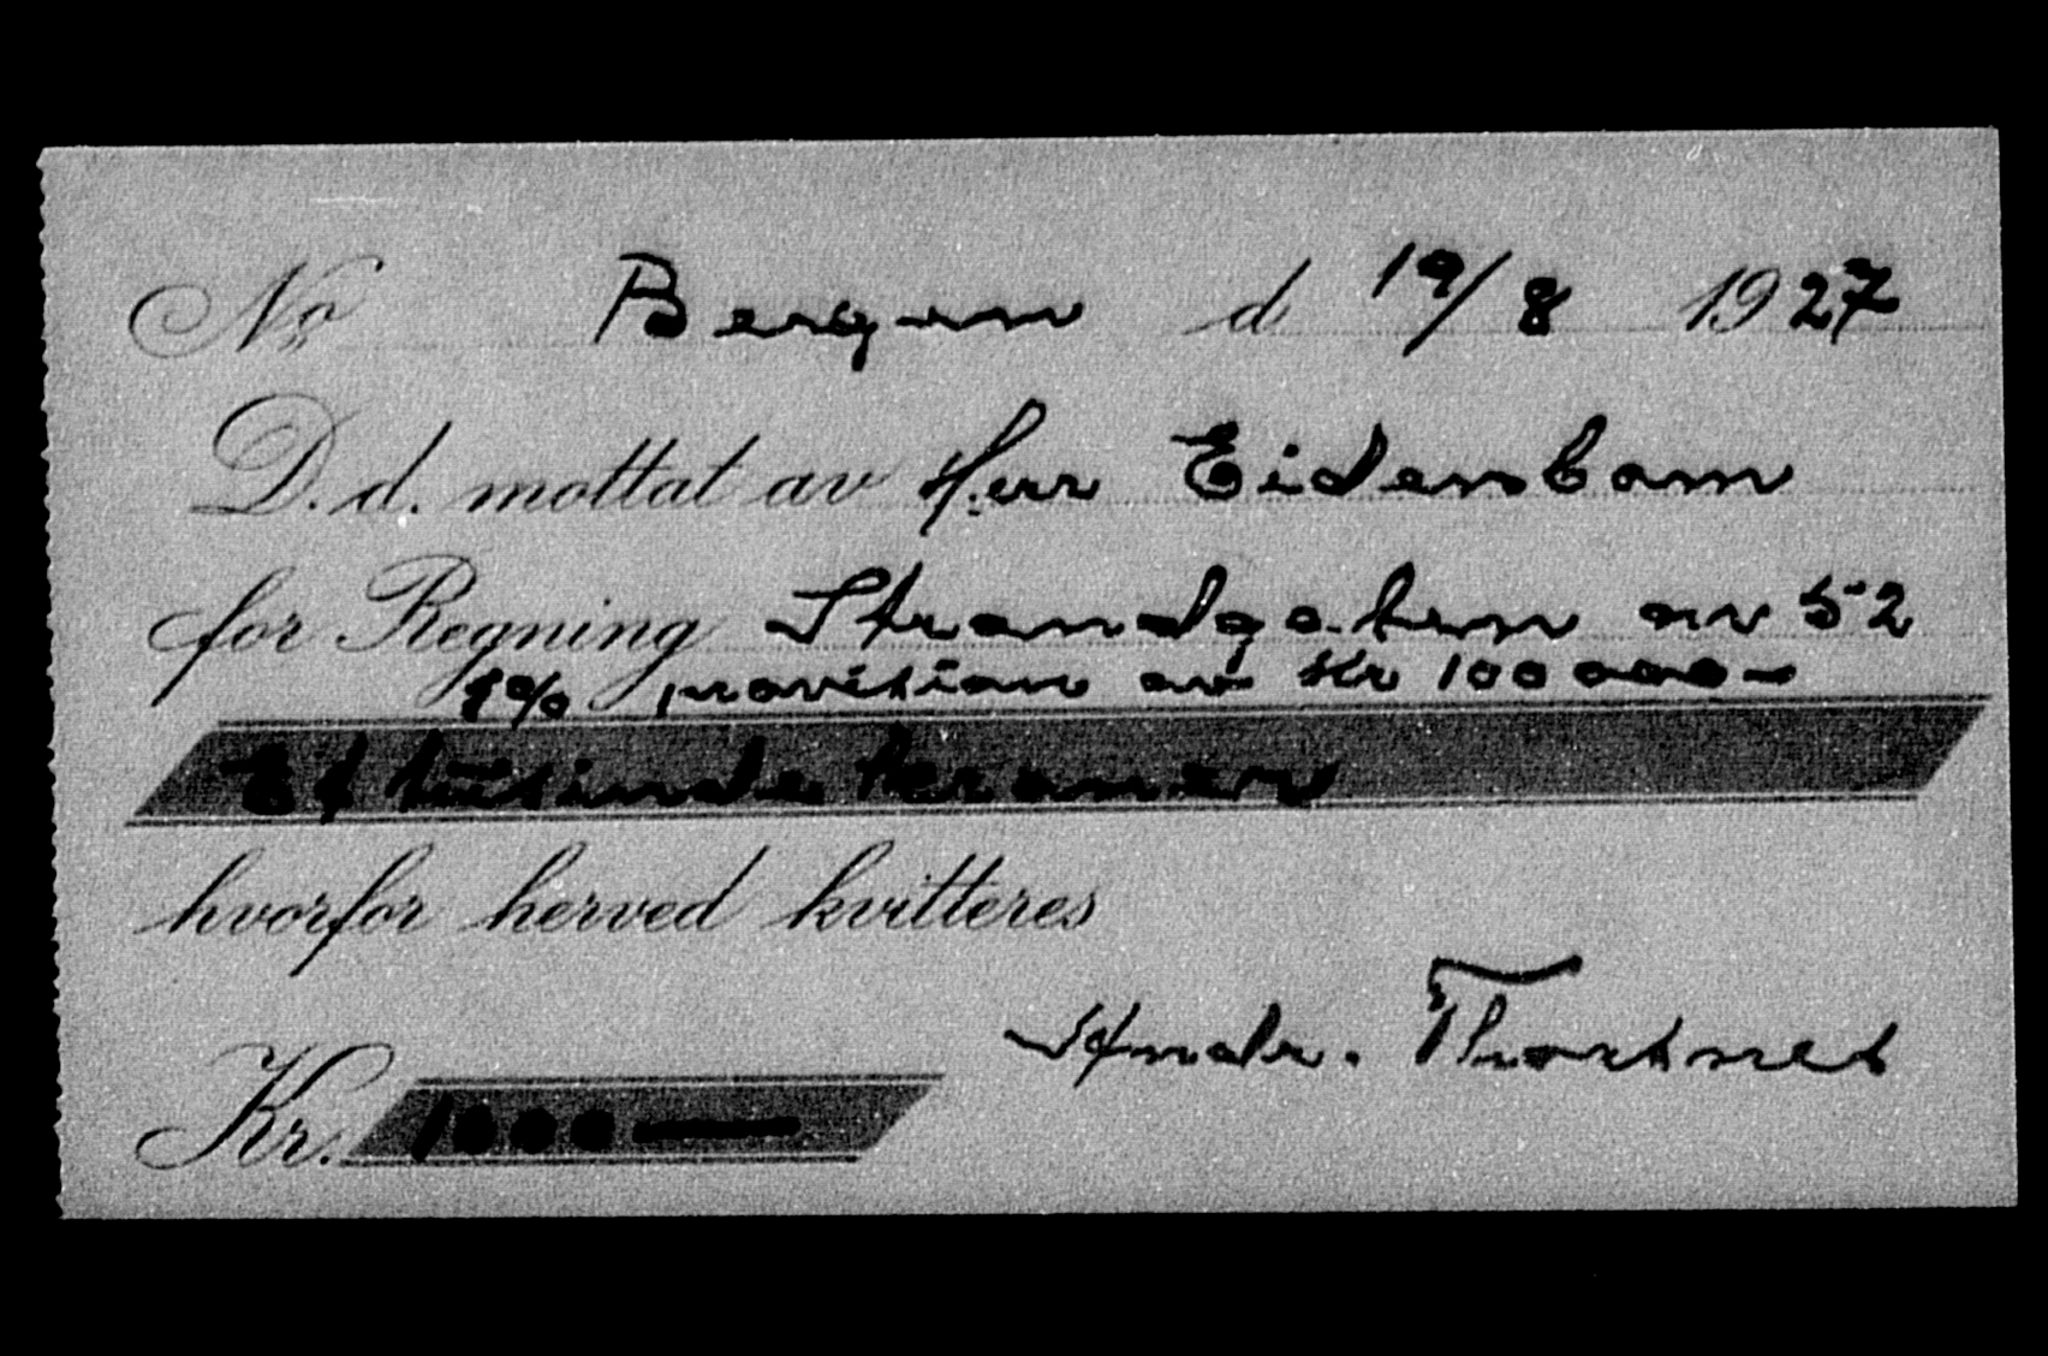 No Bergen d 19/8 1927
D. d. mottat av Herr Eidensbom
for Regning Strandgaten nr 52
1% provision av Kr 100 000 –
Et tusinde kroner
hvorfor herved kvitteres
Andr. Thortnes
Kr. 1000 —